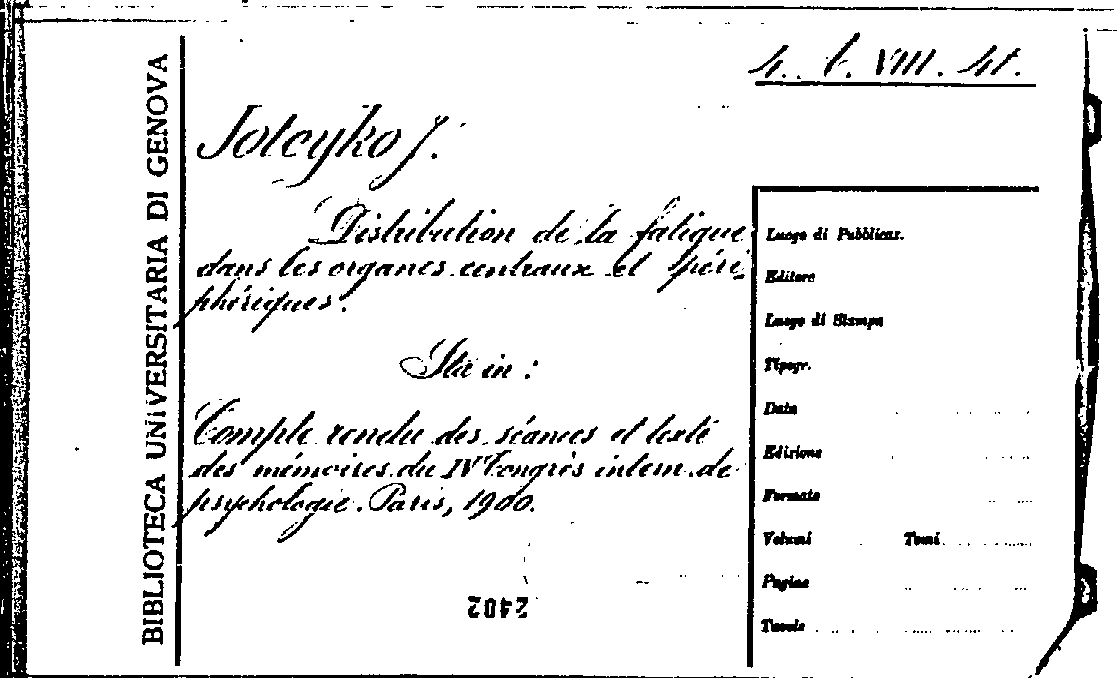 4. b. VIII. 41.
BIBLIOTECA UNIVERSITARIA DI GENOVA
Joteyko J.
Distribution de la fatigue
dans les organes centraux et péri-
phériques.
Sta in:
Compte rendu des séances et texte
des mémoires du IV Congrès intern. de
psychologie. Paris, 1900.
2402
Luogo di Pubblicaz.
Editore
Luogo di Stampa
Tipogr.
Data
Edizione
Formato
Volumi Tomi
Pagine
Tavole